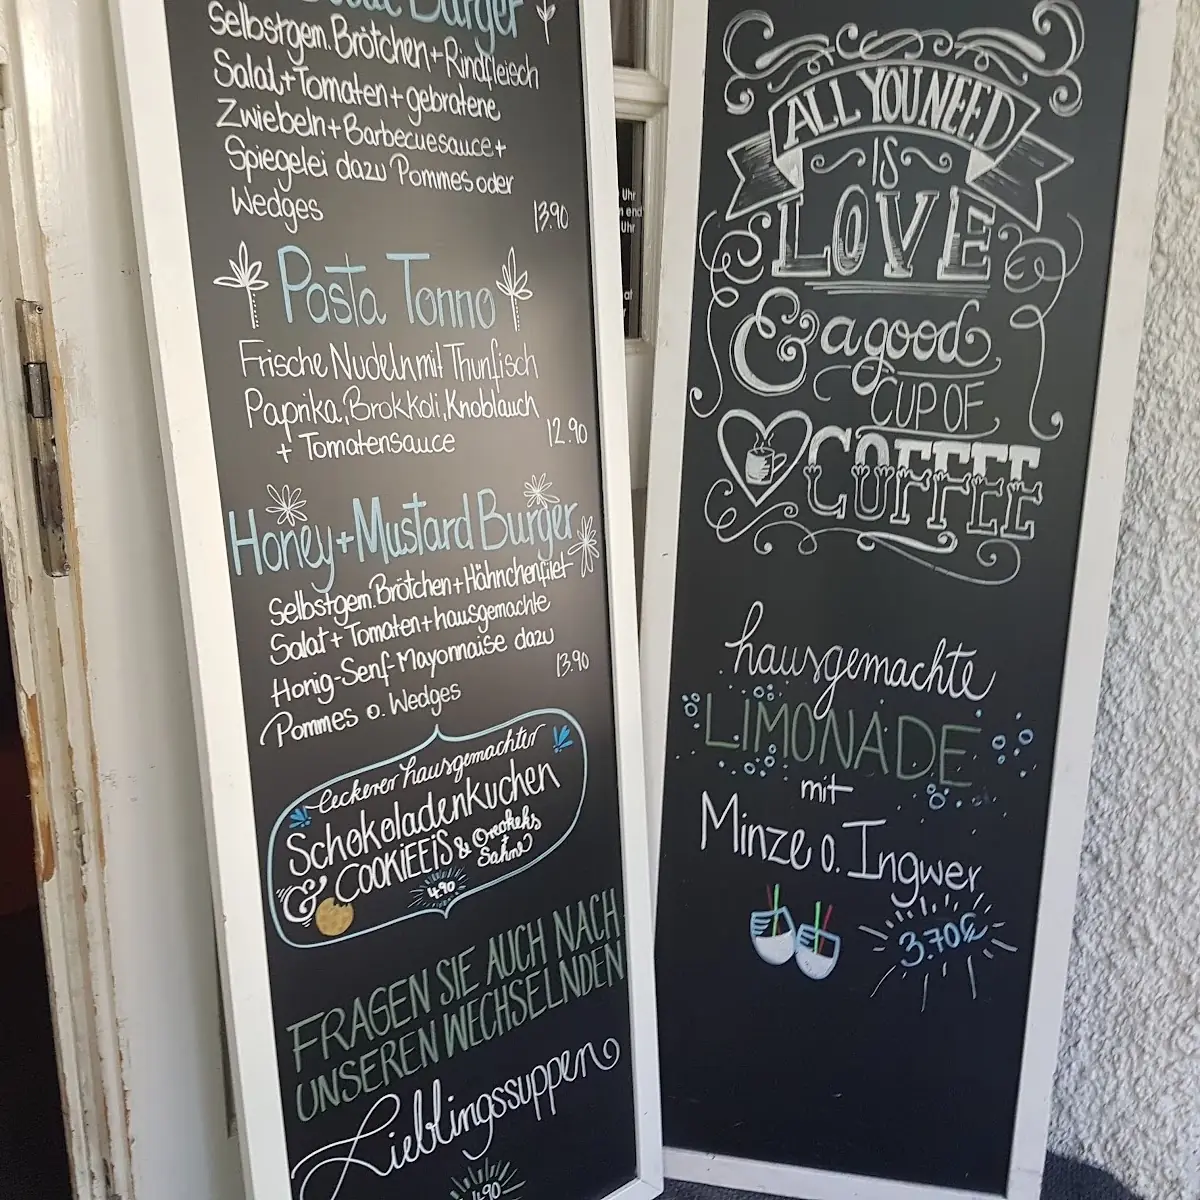 Burger
Selbstgem. Brötchen + Rindfleisch
Salat + Tomaten + gebratene
Zwiebeln + Barbecuesauce +
Spiegelei dazu Pommes oder
Wedges
13.90
Pasta Tonno
Frische Nudeln mit Thunfisch
Paprika, Brokkoli, Knoblauch
+ Tomatensauce
12.90
Honey + Mustard Burger
Selbstgem. Brötchen + Hähnchenfilet
Salat + Tomaten + hausgemachte
Honig-Senf-Mayonnaise dazu
Pommes o. Wedges
13.90
Leckerer hausgemachter
Schokoladenkuchen
& COOKIEEIS & Oreokeks
+
Sahne
4.90
FRAGEN SIE AUCH NACH
UNSEREN WECHSELNDEN
Lieblingssuppen
4.90
Uhr
end
Uhr
ALL YOU NEED
IS
LOVE
& a good
CUP OF
COFFEE
hausgemachte
LIMONADE
mit
Minze o. Ingwer
3.70€